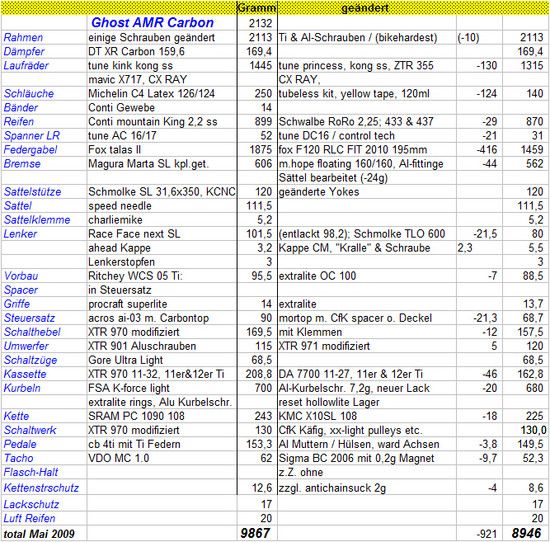 Gramm geändert
Ghost AMR Carbon 2132
Rahmen einige Schrauben geändert 2113 Ti & Al-Schrauben / (bikehardest) (-10) 2113
Dämpfer DT XR Carbon 159,6 169,4 169,4
Laufräder tune kink kong ss 1445 tune princess, kong ss, ZTR 355 -130 1315
mavic X717, CX RAY CX RAY,
Schläuche Michelin C4 Latex 126/124 250 tubeless kit, yellow tape, 120ml -124 140
Bänder Conti Gewebe 14
Reifen Conti mountain King 2,2 ss 899 Schwalbe RoRo 2,25; 433 & 437 -29 870
Spanner LR tune AC 16/17 52 tune DC16 / control tech -21 31
Federgabel Fox talas II 1875 fox F120 RLC FIT 2010 195mm -416 1459
Bremse Magura Marta SL kpl.get. 606 m.hope floating 160/160, Al-fittinge -44 562
Sättel bearbeitet (-24g)
Sattelstütze Schmolke SL 31,6x350, KCNC 120 geänderte Yokes 120
Sattel speed needle 111,5 111,5
Sattelklemme charliemike 5,2 5,2
Lenker Race Face next SL 101,5 (entlackt 98,2); Schmolke TLO 600 -21,5 80
ahead Kappe 3,2 Kappe CM, "Kralle" & Schraube 2,3 5,5
Lenkerstopfen 3 3
Vorbau Ritchey WCS 05 Ti: 95,5 extralite OC 100 -7 88,5
Spacer in Steuersatz
Griffe procraft superlite 14 extralite 13,7
Steuersatz acros ai-03 m. Carbontop 90 mortop m. CfK spacer o. Deckel -21,3 68,7
Schalthebel XTR 970 modifiziert 169,5 mit Klemmen -12 157,5
Umwerfer XTR 901 Aluschrauben 115 XTR 971 modifiziert 5 120
Schaltzüge Gore Ultra Light 68,5 68,5
Kassette XTR 970 11-32, 11er&12er Ti 208,8 DA 7700 11-27, 11er & 12er Ti -46 162,8
Kurbeln FSA K-force light 700 Al-Kurbelschr. 7,2g, neuer Lack -20 680
extralite rings, Alu Kurbelschr. reset hollowlite Lager
Kette SRAM PC 1090 108 243 KMC X10SL 108 -18 225
Schaltwerk XTR 970 modifiziert 130 CfK Käfig, xx-light pulleys etc. 130,0
Pedale cb 4ti mit Ti Federn 153,3 Al Muttern / Hülsen, ward Achsen -3,8 149,5
Tacho VDO MC 1.0 62 Sigma BC 2006 mit 0,2g Magnet -9,7 52,3
Flasch-Halt z.Z. ohne
Kettenstrschutz 12,6 zzgl. antichainsuck 2g -4 8,6
Lackschutz 17 17
Luft Reifen 20 20
total Mai 2009 9867 -921 8946